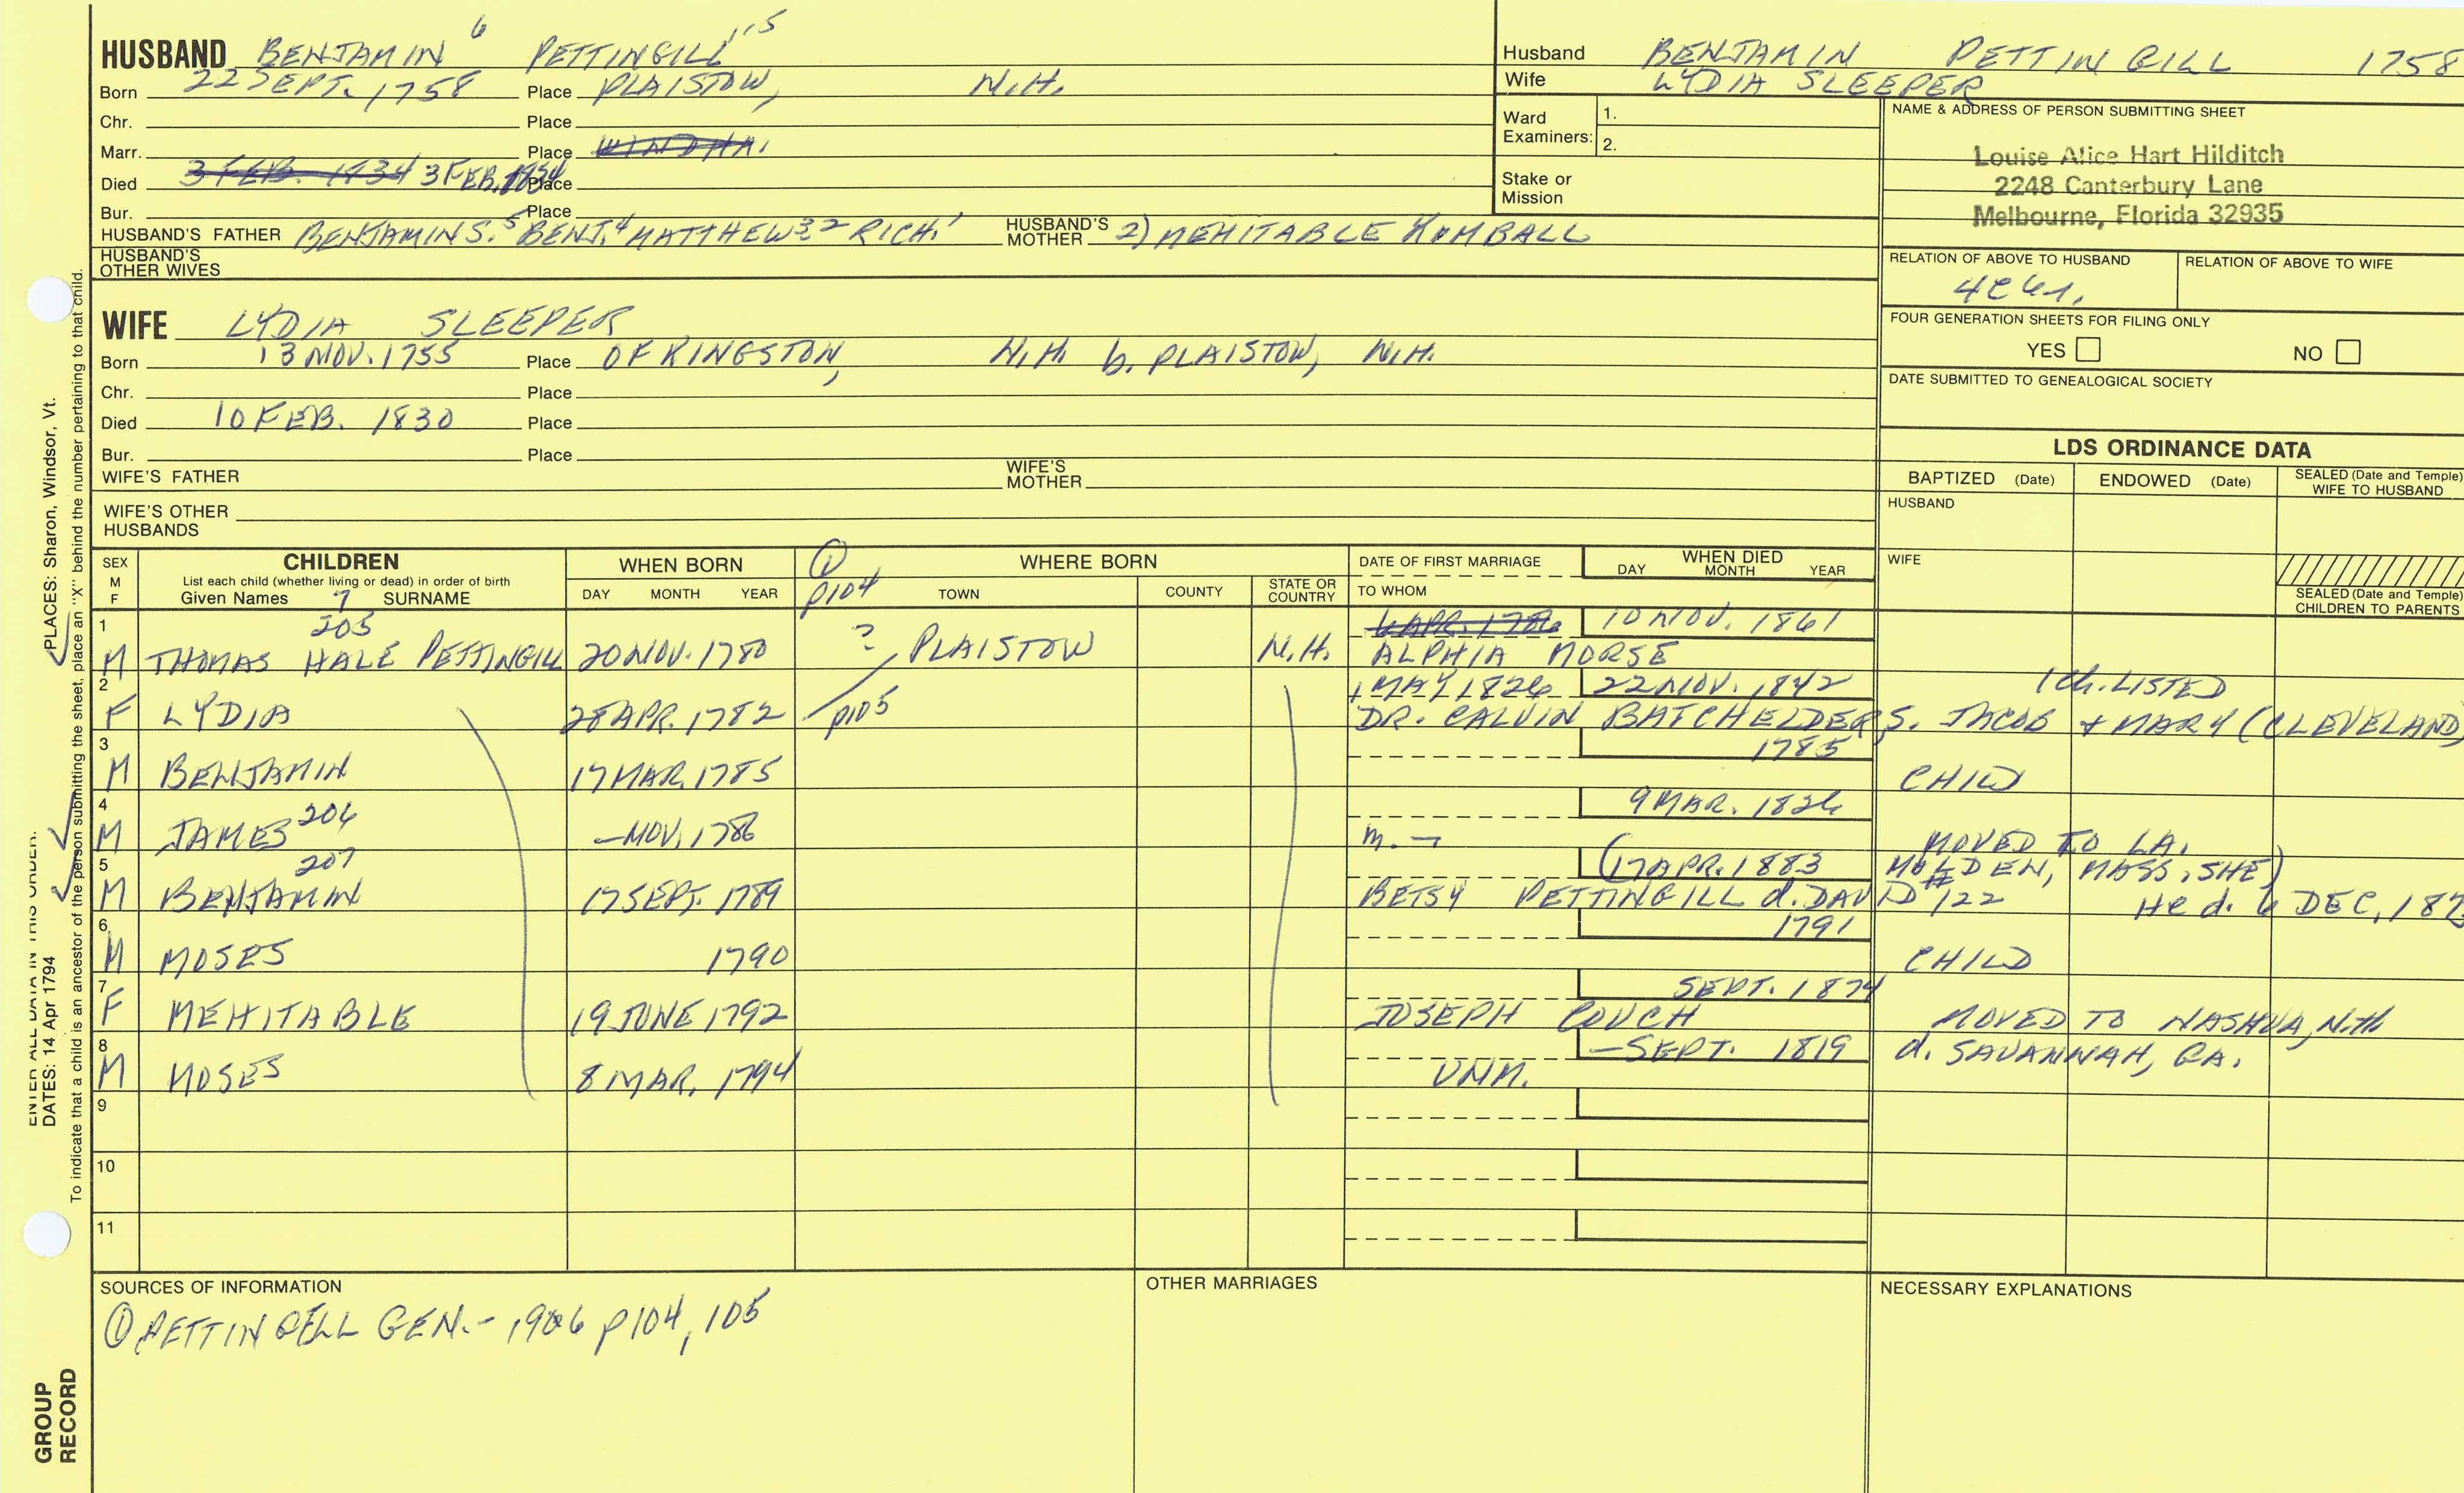 HUSBAND BENJAMIN 6 PETTINGILL 115
Born 22 SEPT. 1758 Place PLAISTOW, N.H.
Chr. Place
Marr. Place WINDHA.
Died 3 FEB. 1834 3 FEB. 1834 Place
Bur. Place
HUSBAND'S FATHER BENJAMIN S.5 BENJ.4 MATTHEW3-2 RICH.1 HUSBAND'S MOTHER 2) MEHITABLE KIMBALL
HUSBAND'S OTHER WIVES
WIFE LYDIA SLEEPER
Born 13 NOV. 1755 Place OF KINGSTON, N.H. b. PLAISTOW, N.H.
Chr. Place
Died 10 FEB. 1830 Place
Bur. Place
WIFE'S FATHER WIFE'S MOTHER
WIFE'S OTHER HUSBANDS
Husband BENJAMIN PETTINGILL 1758
Wife LYDIA SLEEPER
Ward Examiners: 1.
2.
Stake or Mission
NAME & ADDRESS OF PERSON SUBMITTING SHEET
Louise Alice Hart Hilditch
2248 Canterbury Lane
Melbourne, Florida 32935
RELATION OF ABOVE TO HUSBAND RELATION OF ABOVE TO WIFE
FOUR GENERATION SHEETS FOR FILING ONLY
YES NO
DATE SUBMITTED TO GENEALOGICAL SOCIETY
LDS ORDINANCE DATA
BAPTIZED (Date) ENDOWED (Date) SEALED (Date and Temple) WIFE TO HUSBAND
HUSBAND
WIFE
SEALED (Date and Temple) CHILDREN TO PARENTS
SEX M F CHILDREN WHEN BORN ① WHERE BORN DATE OF FIRST MARRIAGE WHEN DIED
List each child (whether living or dead) in order of birth DAY MONTH YEAR p104 TOWN COUNTY STATE OR COUNTRY TO WHOM DAY MONTH YEAR
Given Names 7 SURNAME
1 205 6 APR. 1786 10 NOV. 1861
M THOMAS HALE PETTINGILL 20 NOV. 1780 ? PLAISTOW N.H. ALPHIA MORSE
2 1 MAY 1826 22 NOV. 1842 1 ch. LISTED
F LYDIA 28 APR. 1782 p105 DR. CALVIN BATCHELDER, S. JACOB + MARY (CLEVELAND)
3 1785
M BENJAMIN 17 MAR. 1785 CHILD
4 9 MAR. 1826
M JAMES 206 — NOV. 1786 m. — MOVED TO LA.
5 207 (17 APR. 1883 MOLDEN, MASS. SHE)
M BENJAMIN 17 SEPT. 1789 BETSY PETTINGILL d. DAVID #122 He d. 6 DEC. 187
6 1791
M MOSES 1790 CHILD
7 SEPT. 1874
F MEHITABLE 19 JUNE 1792 JOSEPH COUCH MOVED TO NASHUA, N.H
8 — SEPT. 1819 d. SAVANNAH, GA.
M MOSES 8 MAR. 1794 UNM.
9
10
11
SOURCES OF INFORMATION
① PETTINGELL GEN. - 1906 p104, 105
OTHER MARRIAGES
NECESSARY EXPLANATIONS
PLACES: Sharon, Windsor, Vt.
ENTER ALL DATA IN THIS ORDER:
DATES: 14 Apr 1794
To indicate that a child is an ancestor of the person submitting the sheet, place an "X" behind the number pertaining to that child.
GROUP RECORD